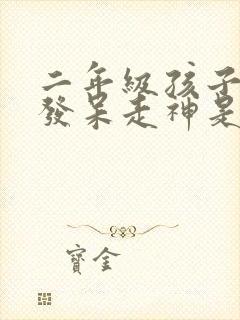 二年級孩子
發呆走神是
寶金